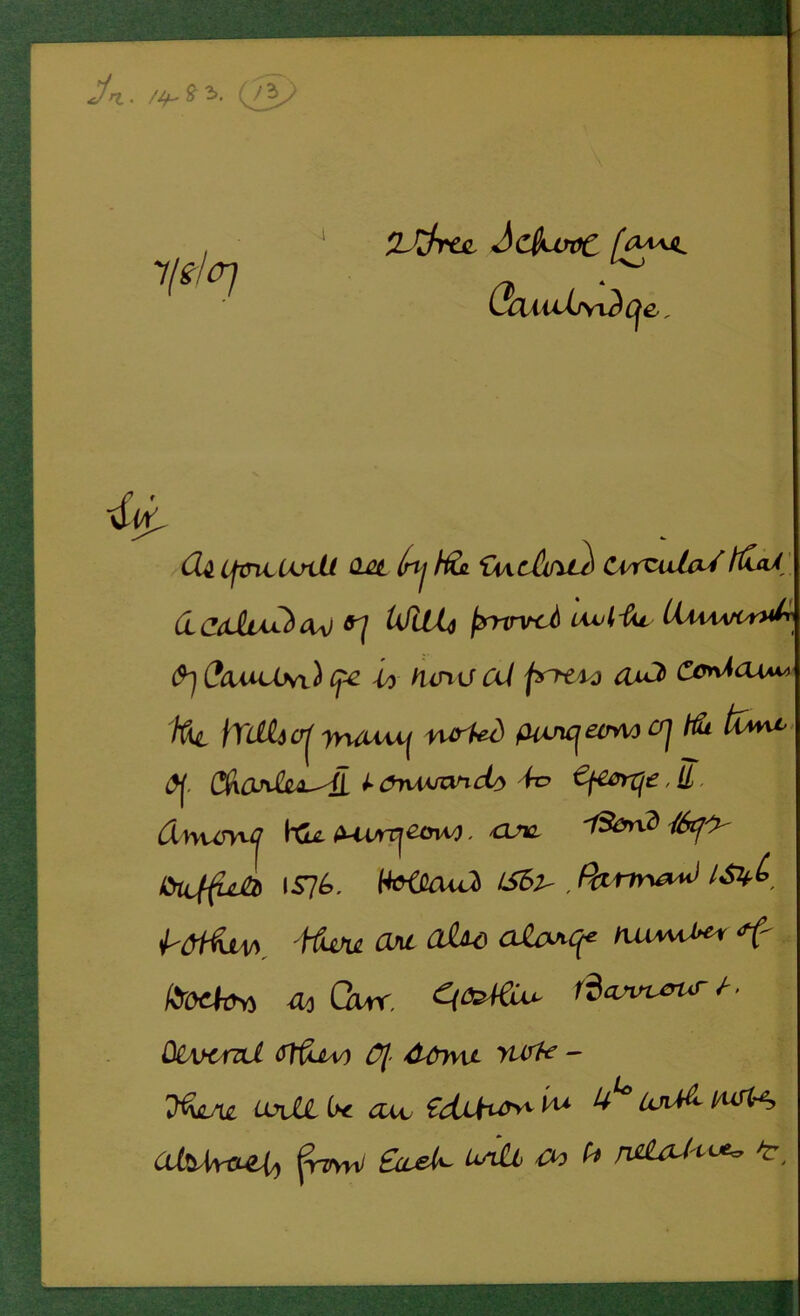 In. 1483. (13)
7/8/07
Three School Lane
Cambridge.
Sir,
As you will see by the enclosed circular that
a calendar of Wills proved in the University
of Cambridge is now at press and contains
the Wills of many noted surgeons of the time
of Charles II onwards to George II.
Among the surgeons. are Bond 1692
Duffield 1576. Holland 1562. 1546.
+ others. There are also a large number of
Doctors as Carr. +.
Several others of some note -
There will be an Edition in 4to with notes,
abstracts from Each will as to relative &c.